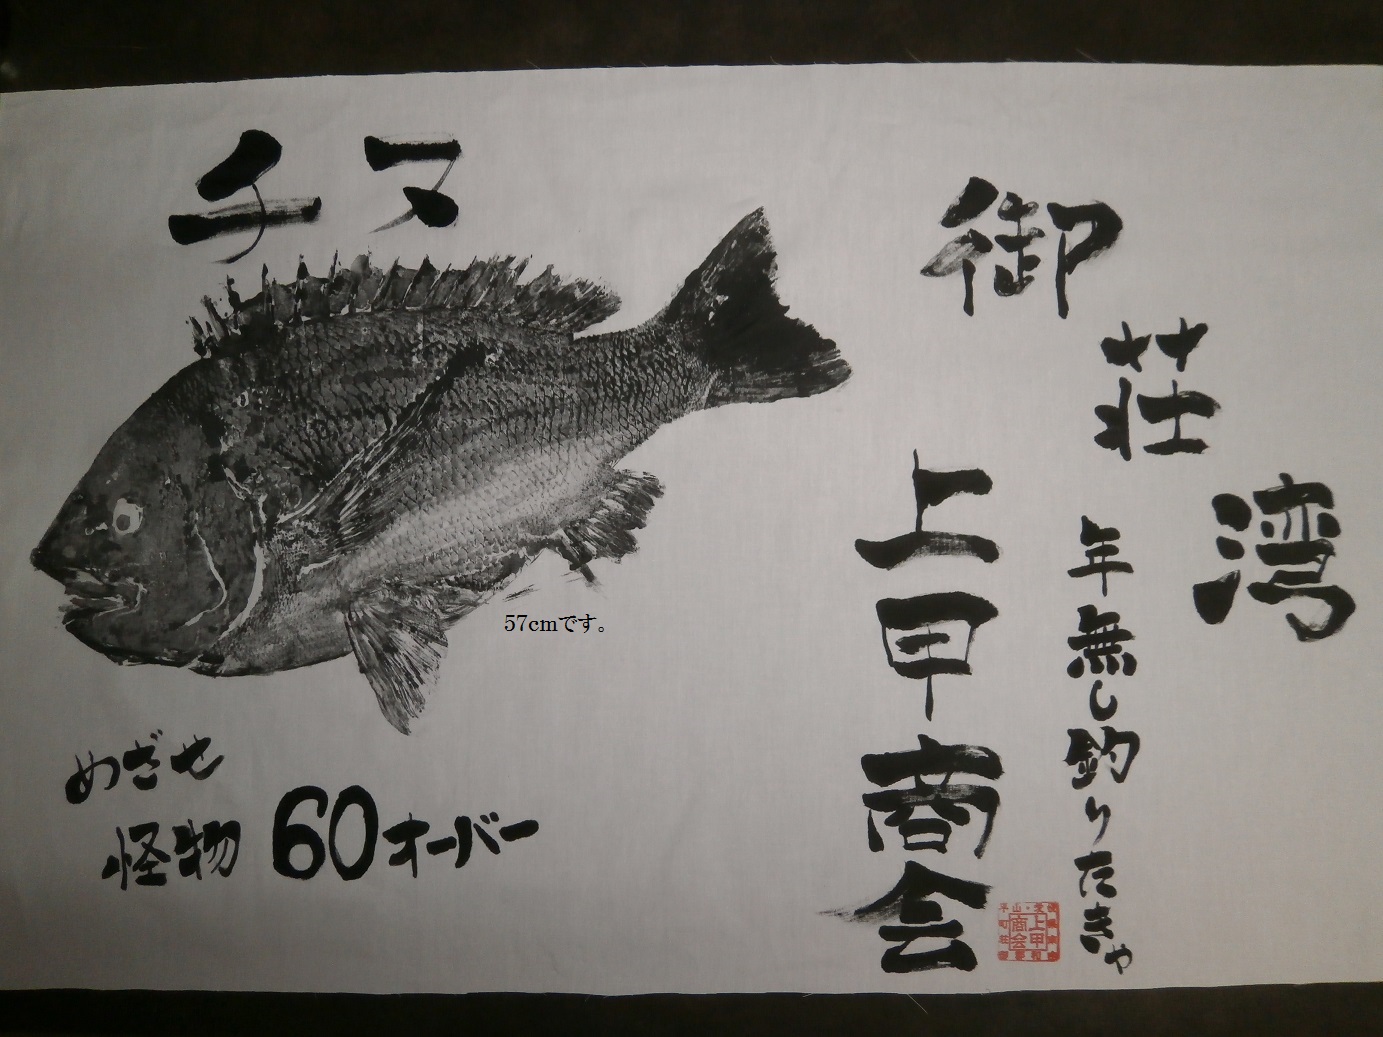 チヌ
御荘湾
年無し釣りたきゃ
上甲商会
57cmです。
めざせ
怪物60オーバー
上甲
商会